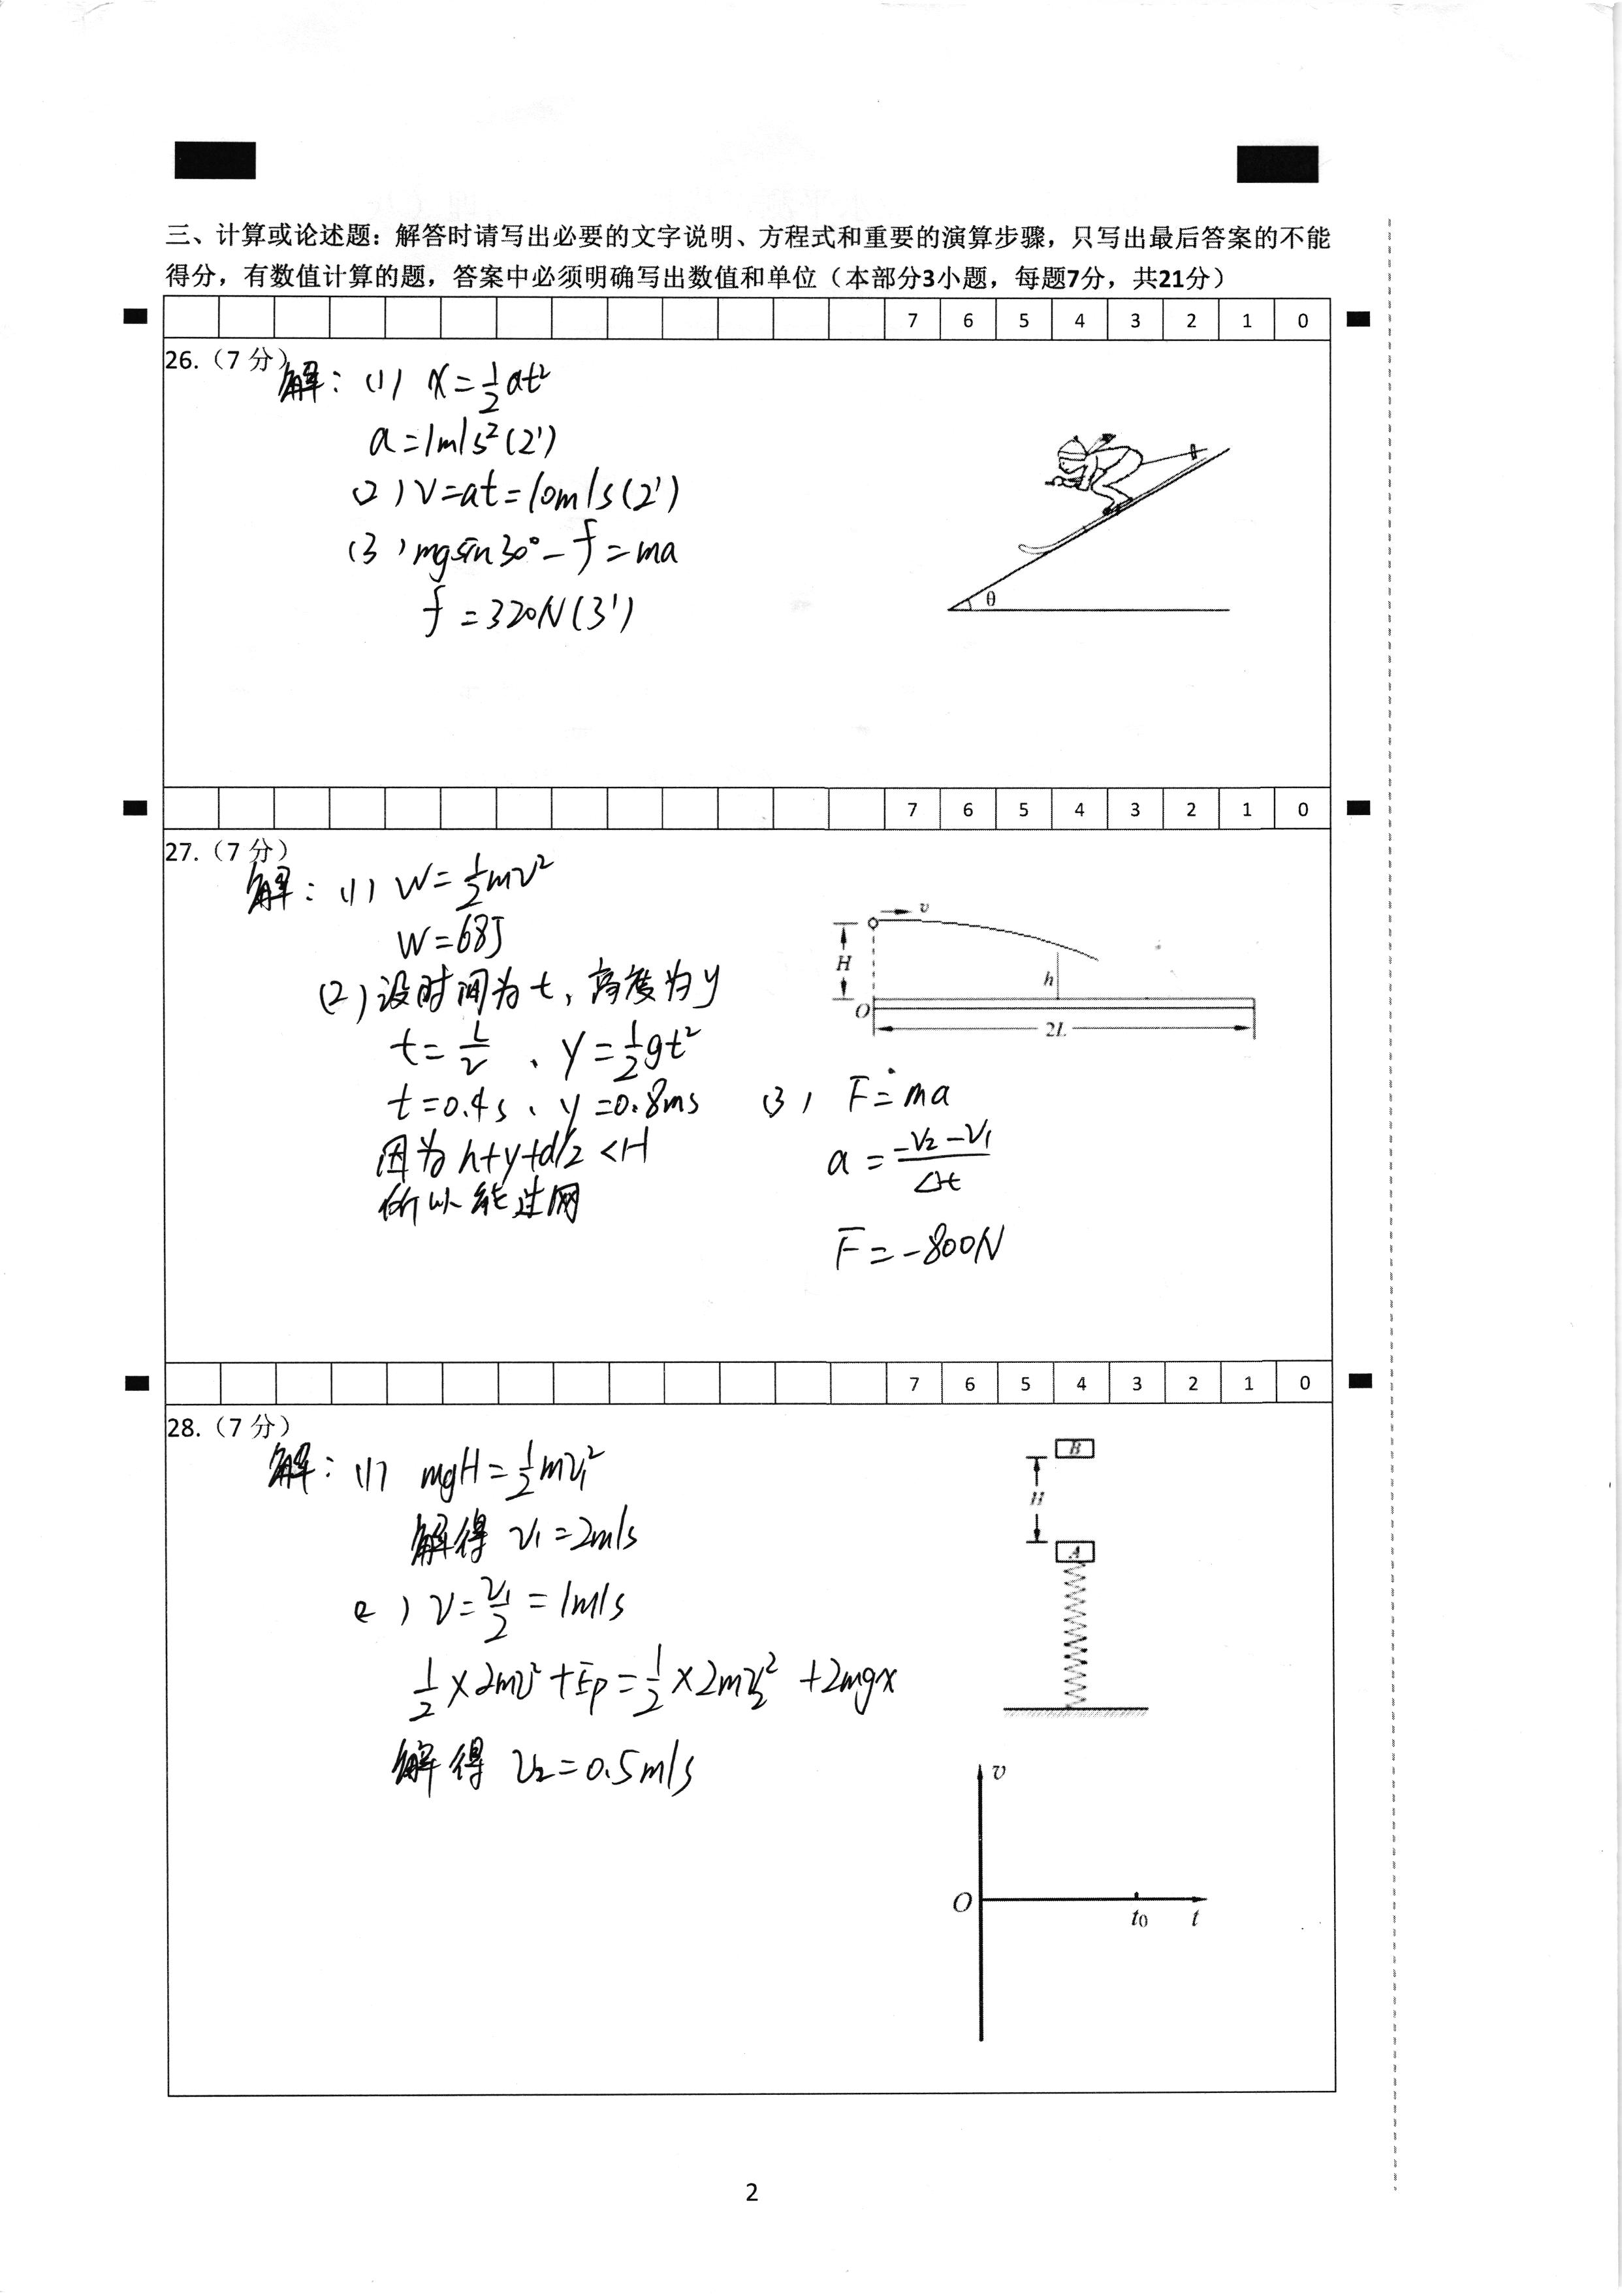 三、计算或论述题：解答时请写出必要的文字说明、方程式和重要的演算步骤，只写出最后答案的不能
得分，有数值计算的题，答案中必须明确写出数值和单位（本部分3小题，每题7分，共21分）
7 6 5 4 3 2 1 0
26.（7 分）
解：(1) x=½at²
a=1m/s²(2')
(2) v=at=10m/s(2')
(3) mgsin30°-f=ma
f=320N(3')
θ
7 6 5 4 3 2 1 0
27.（7 分）
解：(1) W=½mv²
W=68J
(2) 设时间为t，高度为y
t=L/v 、y=½gt²
t=0.4s、y=0.8ms
因为h+y+d/2<H
所以能过网
v
H
h
O
2L
(3) F=ma
a=(-v₂-v₁)/Δt
F=-800N
7 6 5 4 3 2 1 0
28.（7 分）
解：(1) mgH=½mv₁²
解得 v₁=2m/s
(2) v=v₁/2=1m/s
½×2mv²+Ep=½×2mv₂²+2mgx
解得 v₂=0.5m/s
B
H
A
v
O
t₀ t
2